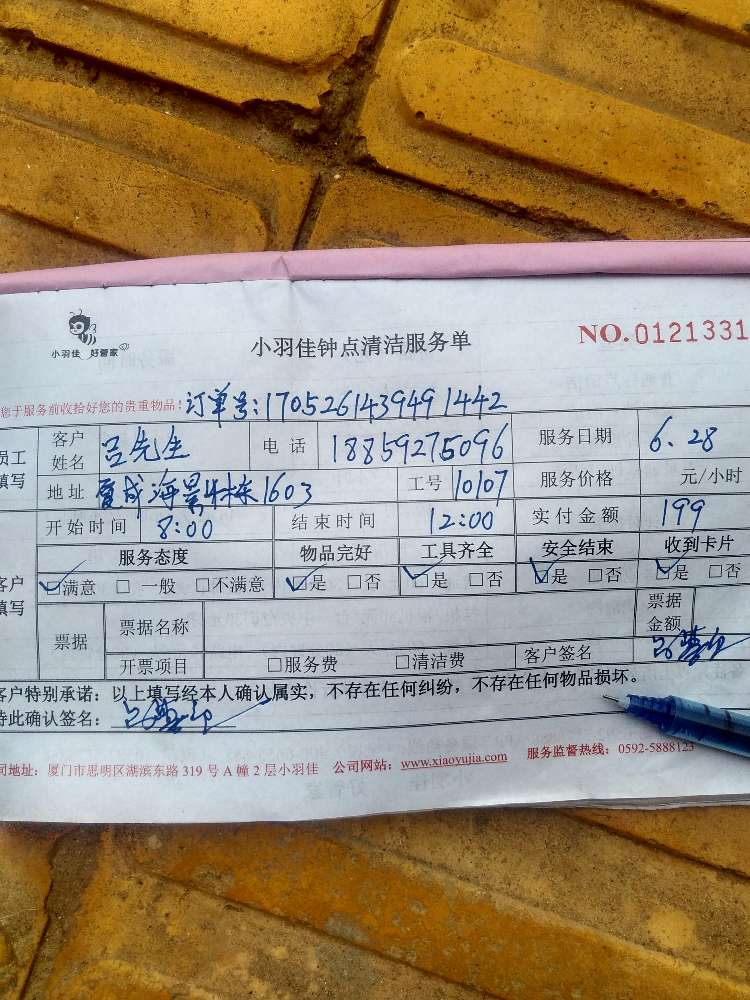 小羽佳 好管家
小羽佳钟点清洁服务单
NO.0121331
您于服务前收拾好您的贵重物品! 订单号:1705261439491442
员工填写 客户姓名 吕先生 电话 18859275096 服务日期 6.28
地址 夏成海景 栋1603 工号 10107 服务价格 元/小时
开始时间 8:00 结束时间 12:00 实付金额 199
客户填写 服务态度 物品完好 工具齐全 安全结束 收到卡片
☑满意 □一般 □不满意 ☑是 □否 ☑是 □否 ☑是 □否 ☑是 □否
票据 票据名称 票据金额
开票项目 □服务费 □清洁费 客户签名
客户特别承诺：以上填写经本人确认属实，不存在任何纠纷，不存在任何物品损坏。
特此确认签名：
司地址：厦门市思明区湖滨东路 319 号 A 幢 2 层小羽佳 公司网站：www.xiaoyujia.com 服务监督热线：0592-5888123